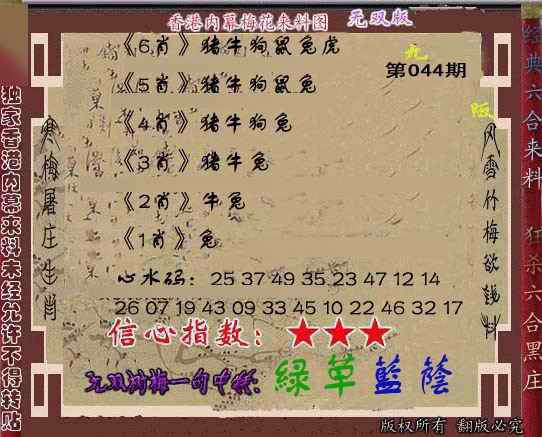 香港内幕梅花来料图 无双版
《6肖》猪牛狗鼠兔虎
第044期
《5肖》猪牛狗鼠兔
《4肖》猪牛狗兔
《3肖》猪牛兔
《2肖》牛兔
《1肖》兔
心水码：25 37 49 35 23 47 12 14
26 07 19 43 09 33 45 10 22 46 32 17
信心指数：★★★
一句中特：綠草藍蔭
版权所有 翻版必究
独家香港内幕来料未经允许不得转贴
寒梅屠庄生肖
风雪竹梅欲钱料
经典六合来料 狂杀六合黑庄